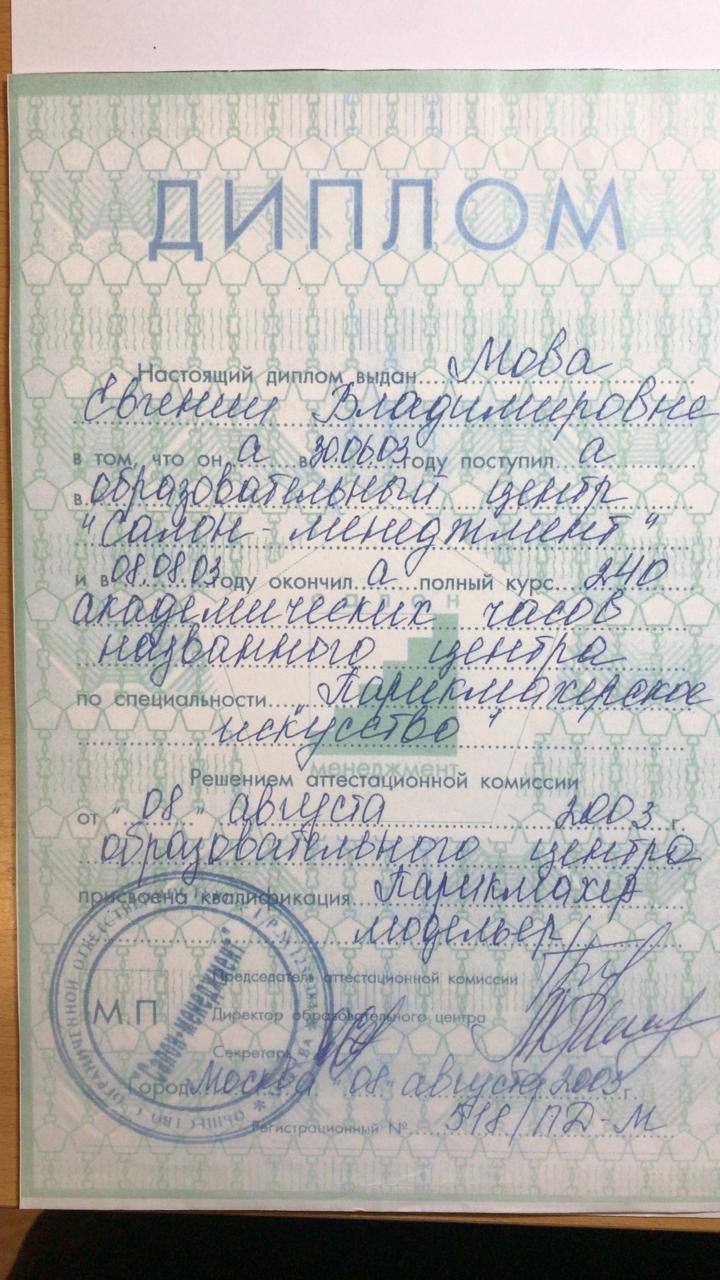 ДИПЛОМ
Настоящий диплом выдан Мова
Евгении Владимировне
в том, что он а в 30.06.03 году поступил а
в образовательный центр
"Салон - менеджмент"
и в 08.08.03 году окончил а полный курс 240
академических часов
названного центра
по специальности "Парикмахерское
искусство"
менеджмент
Решением аттестационной комиссии
от "08" августа 2003 г.
образовательного центра
присвоена квалификация Парикмахер
модельер
Председатель аттестационной комиссии
М.П
Директор образовательного центра
Секретарь
"Салон-менеджмент"
Город Москва "08" августа 2003 г.
Регистрационный № 518/ПД-М